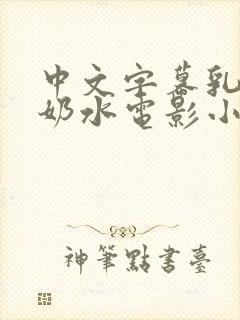 中文字幕乳
奶水电影小
神筆點書臺